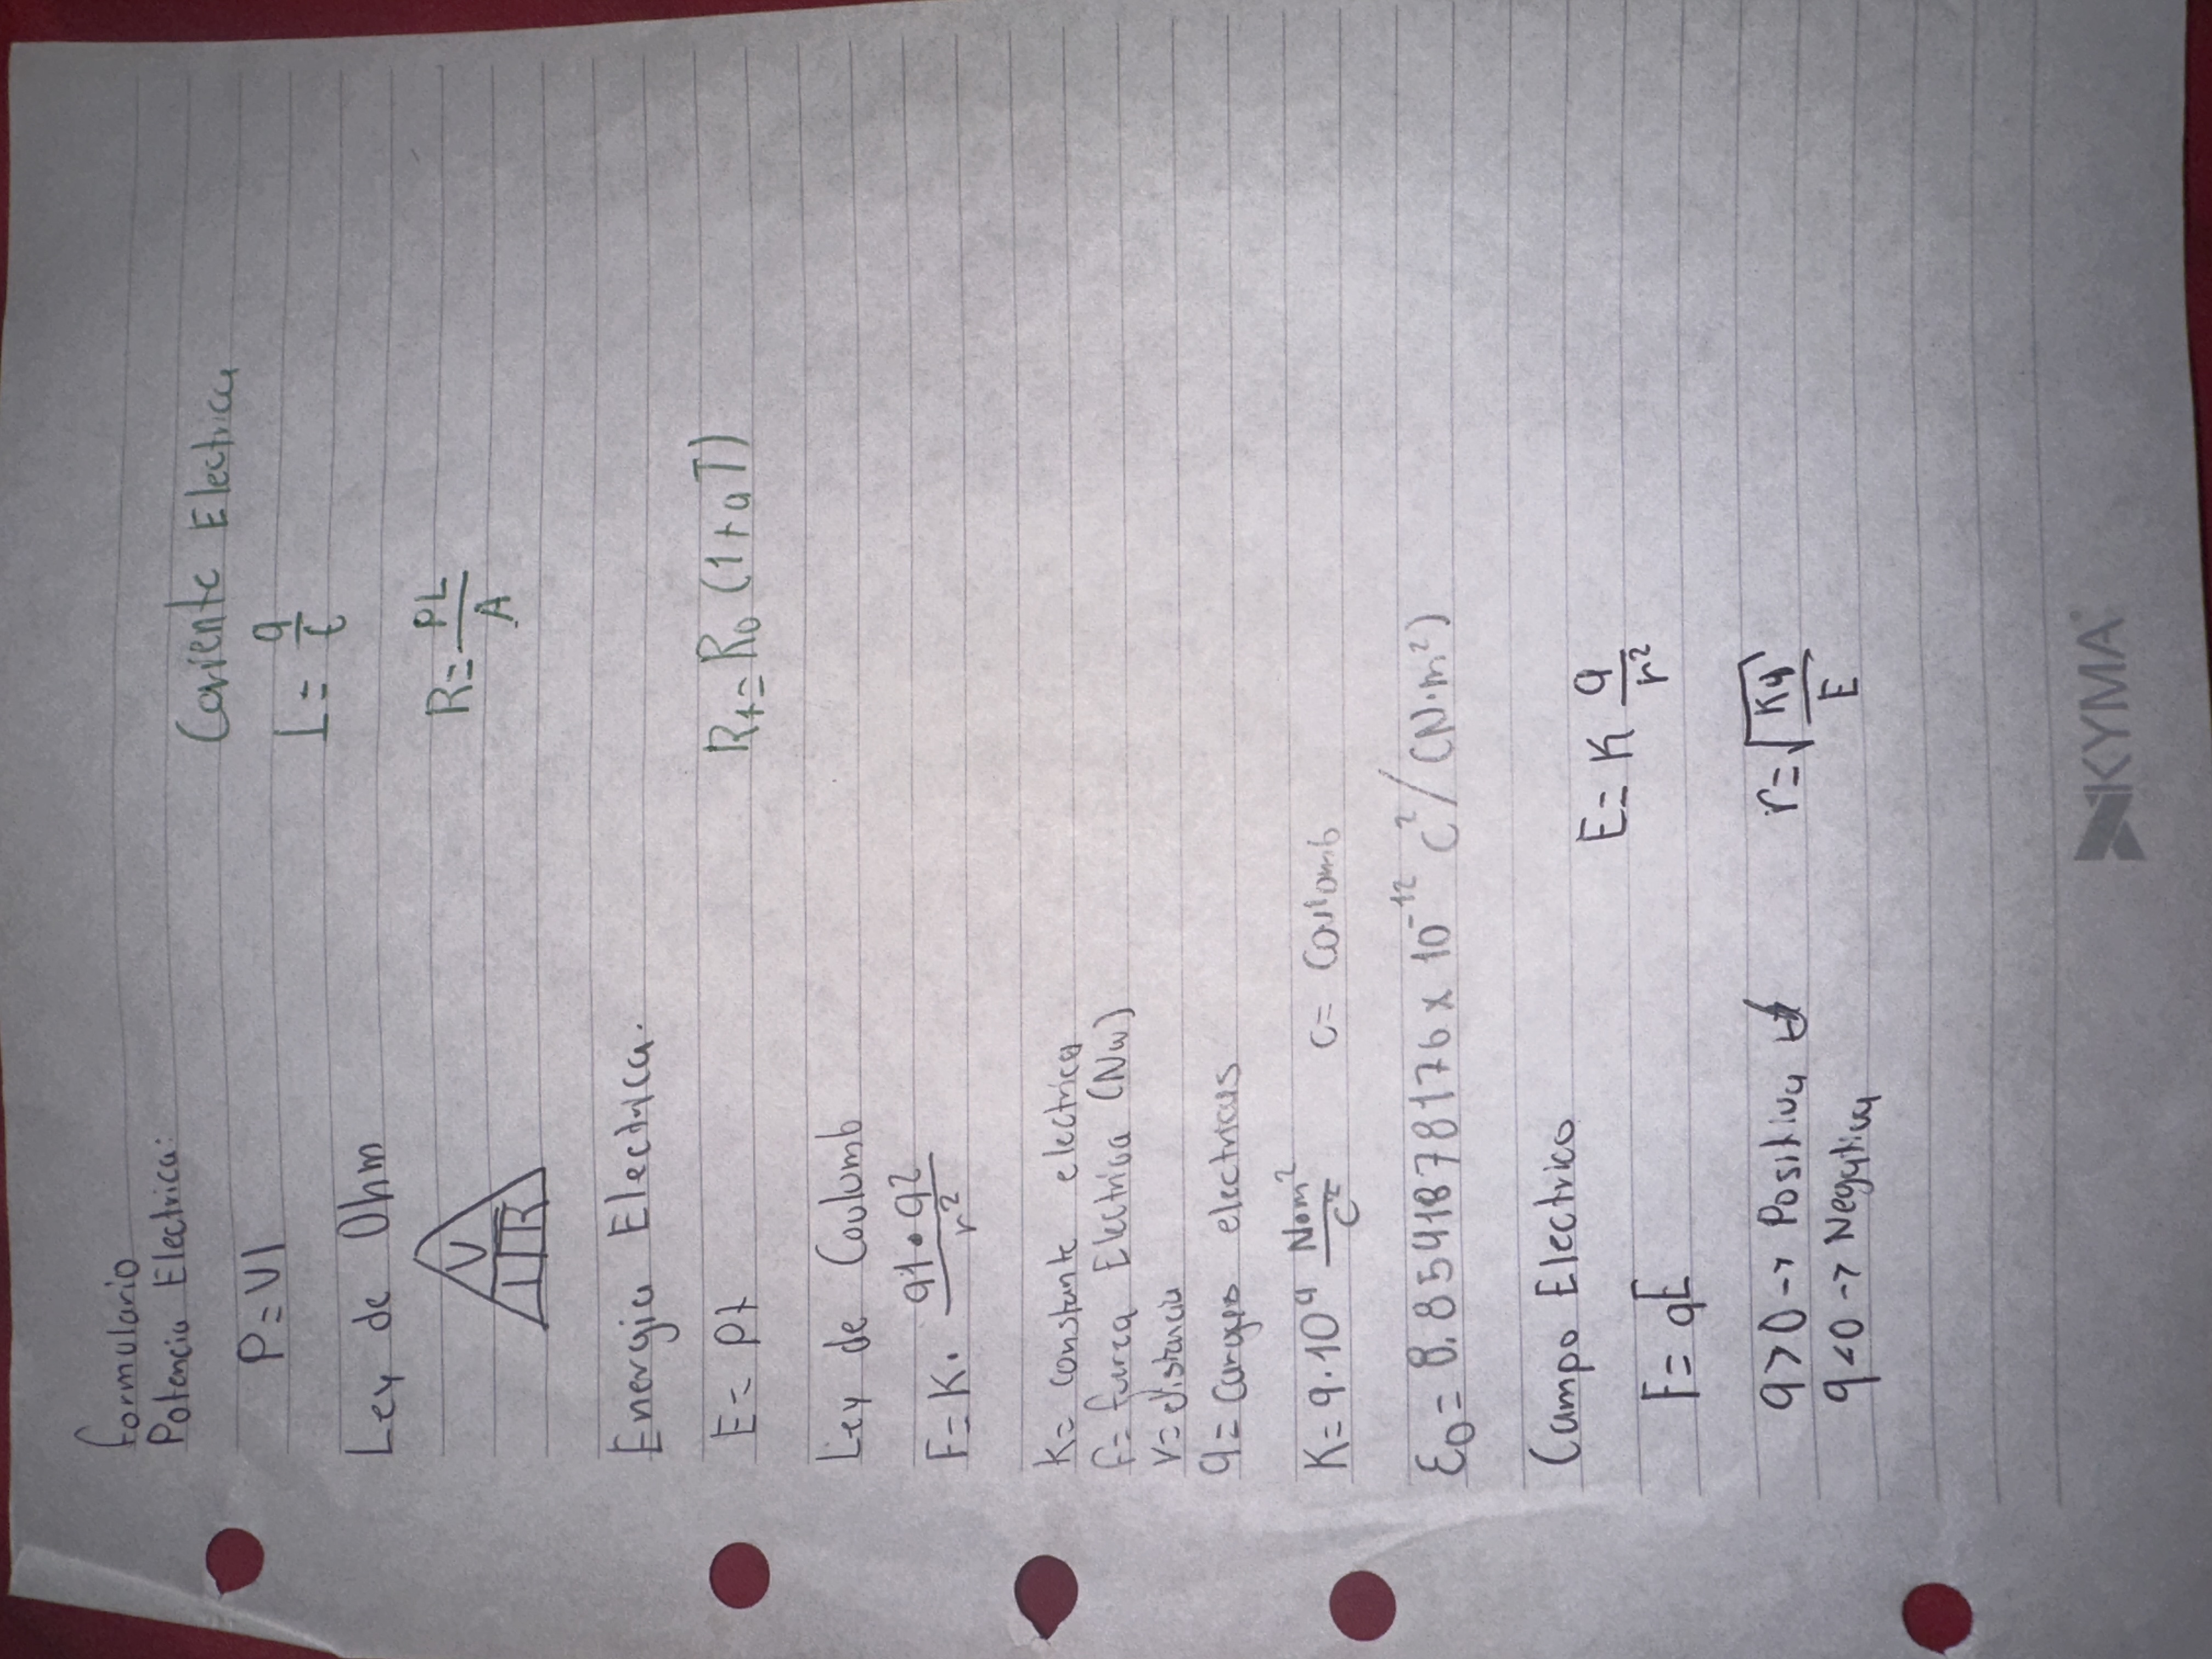 Formulario
Potencia Electrica:
Coriente Electrica
P = VI
I = q/t
Ley de Ohm
V
I R
R = PL/A
Energia Electrica.
E = Pt
Rt = R0 (1+aT)
Ley de Coulomb
F = K • q1 • q2/r²
K = constante electrica
F = fuerza Electrica (Nw)
r = distancia
q = cargas electricas
K = 9.10⁹ N•m²/c²
c = Coulomb
ε0 = 8.8541878176 x 10⁻¹² C²/(N·m²)
Campo Electrico
E = K q/r²
F = qE
q > 0 -> Positiva
r = √Kq/E
q < 0 -> Negativa
KYMA